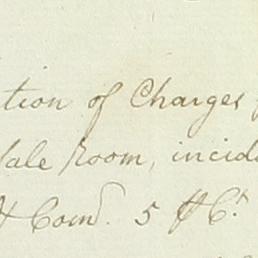 tion of Charges f
Sale Room, incid
& Comd. 5 ⅌ Ct.